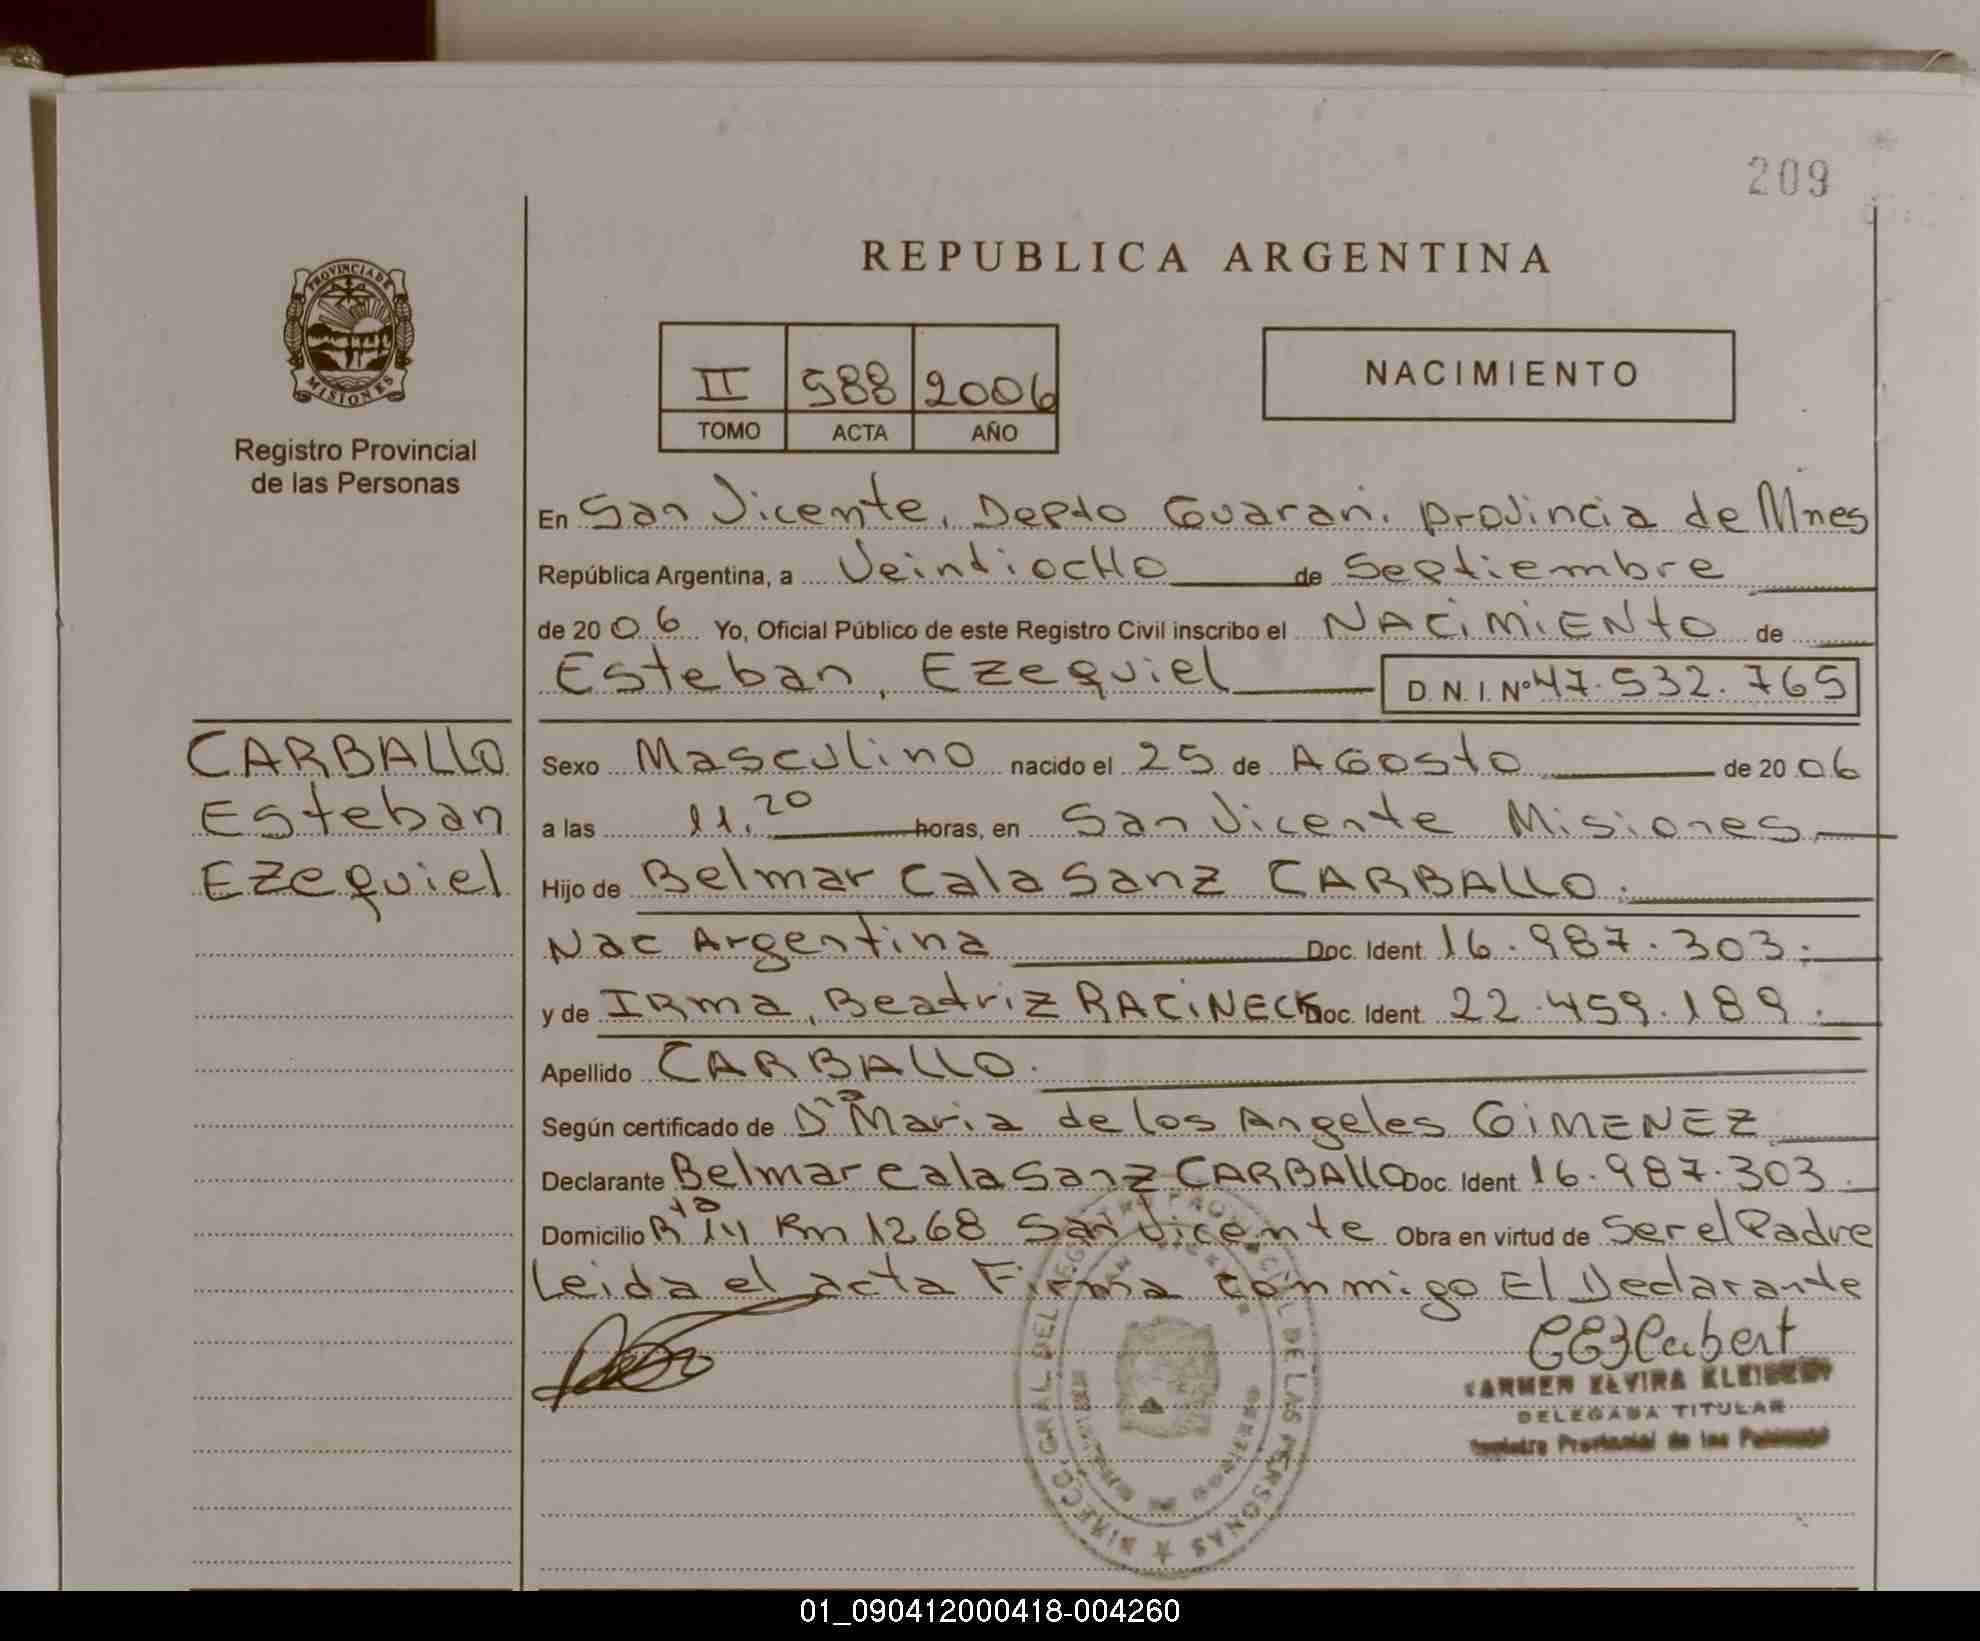 209
REPUBLICA ARGENTINA
PROVINCIA DE
MISIONES
Registro Provincial
de las Personas
II 588 2006
TOMO ACTA AÑO
NACIMIENTO
En San Vicente, Depto Guarani. provincia de Mnes
República Argentina, a Veintiocho de Septiembre
de 20 06 Yo, Oficial Público de este Registro Civil inscribo el NACIMIENTO de
Esteban, Ezequiel D. N. I. Nº 47.532.765
CARBALLO
Esteban
Ezequiel
Sexo Masculino nacido el 25 de AGosto de 20 06
a las 11.20 horas, en San Vicente Misiones
Hijo de Belmar Cala Sanz CARBALLO.
Nac Argentina Doc. Ident. 16.987.303.
y de IRma, Beatriz RACiNECK Doc. Ident. 22.459.189.
Apellido CARBALLO.
Según certificado de Dra Maria de los Angeles GiMENEZ
Declarante Belmar Cala Sanz CARBALLO Doc. Ident. 16.987.303.
Domicilio Rta 14 Km 1268 San Vicente Obra en virtud de Ser el Padre
Leida el acta Firma conmigo El Declarante
CARMEN ELVIRA
DELEGADA TITULAR
Registro Provincial de las Personas
DIRECC. GRAL DEL REGISTRO PROVINCIAL DE LAS PERSONAS
01_090412000418-004260